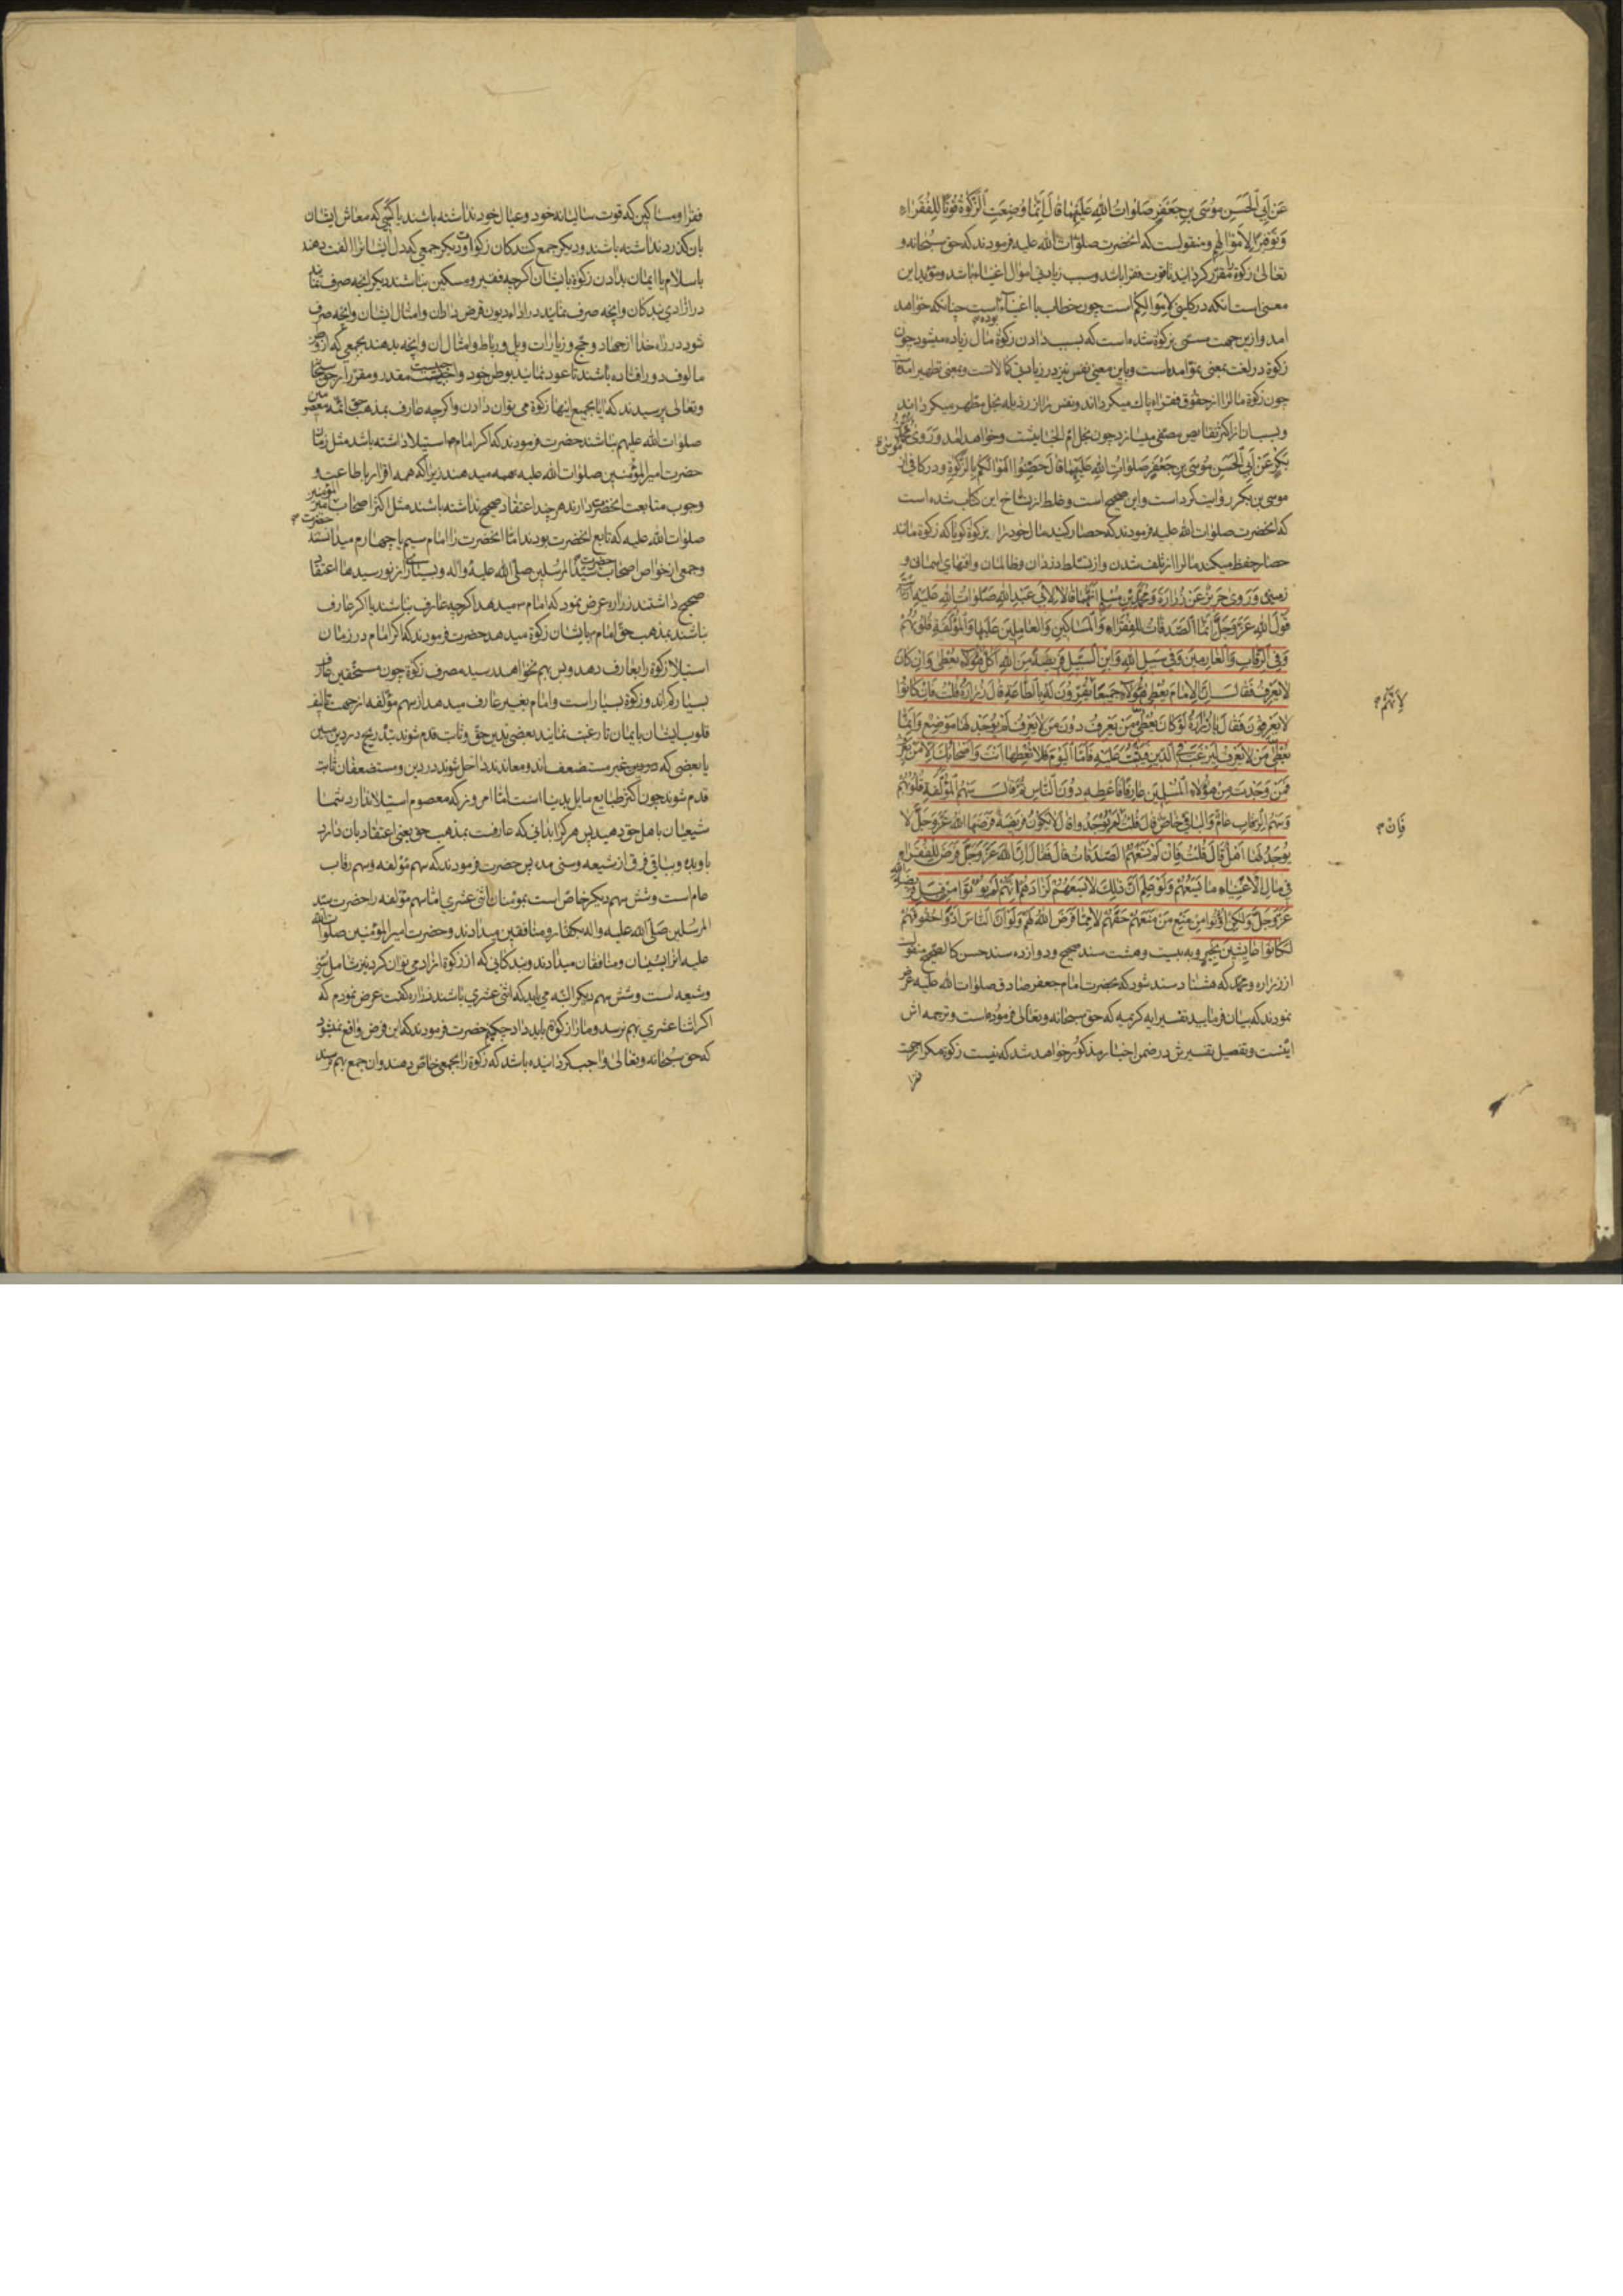 عَن اَبِي الْحَسَنِ مُوسَى بنِ جَعْفَرٍ صَلَواتُ اللهِ عَلَيْهِمَا قَالَ اِنَّمَا وُضِعَتِ الزَّكوةُ قُوتًا لِلْفُقَرَاءِ
وَتَوْفِيرًا لِاَمْوَالِهِم و منقولست که انحضرت صلوات الله علیه فرمودند که حق سبحانه و
تعالی زکوة را مقرر کردانید تا قوت فقرا باشد و سبب زیادتی اموال اغنیاء باشد و مؤید این
معنی است انکه در کلینی لاموالکم است چون خطاب با اغنیاء است چنانکه خواهد
امد و ازین جهت مسمی بزکوة شده است که بسبب دادن زکوة مال زیاده میشود چون
زکوة در لغت بمعنی نمو امده است و باین معنی نفس نیز در زیادتی کمالاتست و بمعنی تطهیر امده است
چون زکوة مال را از حقوق فقراء پاك میکرداند و نفس را از رذیله بخل مطهر میکرداند
و بسیار از اکثر نقایص مصفی میسازد چون بخل ام الخبایثست و خواهد امد وَرَوَى
بَكْرٍ عَنْ اَبِي الْحَسَنِ مُوسَى بنِ جَعْفَرٍ صَلَواتُ اللهِ عَلَيْهِمَا قَالَ حَصِّنُوا اَمْوَالَكُمْ بِالزَّكوةِ و در کافی از
موسی بن بکر روایت کرده است و این صحیح است و غلط از نساخ این کتاب شده است
که انحضرت صلوات الله علیه فرمودند که حصار کنید مال خود را بزکوة کویا که زکوة مانند
حصار حفظ میکند مال را از تلف شدن و از تسلط دزدان و ظالمان و افتهای اسمانی و
زمینی وَرَوَى حَرِيزٌ عَنْ زُرَارَةَ وَمُحَمَّدِ بْنِ مُسْلِمٍ اَنَّهُمَا قَالا لِاَبِي عَبْدِ اللهِ صَلَواتُ اللهِ عَلَيْهِ
قَوْلَ اللهِ عَزَّ وَجَلَّ اِنَّمَا الصَّدَقَاتُ لِلْفُقَرَاءِ وَالْمَسَاكِينِ وَالْعَامِلِينَ عَلَيْهَا وَالْمُؤَلَّفَةِ قُلُوبُهُمْ
وَفِي الرِّقَابِ وَالْغَارِمِينَ وَفِي سَبِيلِ اللهِ وَابْنِ السَّبِيلِ فَرِيضَةً مِنَ اللهِ اَكُلُّ هٰؤُلَاءِ يُعْطَى وَاِنْ كَانَ
لَا يَعْرِفُ فَقَالَ اِنَّ الْاِمَامَ يُعْطِي هٰؤُلَاءِ جَمِيعًا يُقِرُّونَ لَهُ بِالطَّاعَةِ قَالَ زُرَارَةُ قُلْتُ فَاِنْ كَانُوا
لِاَنَّهُمْ
لَا يَعْرِفُونَ فَقَالَ يَا زُرَارَةُ لَوْ كَانَ يُعْطِي مَنْ يَعْرِفُ دُونَ مَنْ لَا يَعْرِفُ لَمْ يُوجَدْ لَهَا مَوْضِعٌ وَاِنَّمَا
يُعْطِي مَنْ لَا يَعْرِفُ لِيَرْغَبَ فِي الدِّينِ فَيَثْبُتَ عَلَيْهِ فَاَمَّا الْيَوْمَ فَلَا تُعْطِهَا اَنْتَ وَاَصْحَابُكَ اِلَّا مَنْ يَعْرِفُ
فَمَنْ وَجَدْتَ مِنْ هٰؤُلَاءِ الْمُسْلِمِينَ عَارِفًا فَاَعْطِهِ دُونَ النَّاسِ ثُمَّ قَالَ سَهْمُ الْمُؤَلَّفَةِ قُلُوبُهُمْ
وَسَهْمُ الرِّقَابِ عَامٌّ وَالْبَاقِي خَاصٌّ قَالَ قُلْتُ لَمْ يُوجَدُوا قَالَ لَا تَكُونُ فَرِيضَةٌ فَرَضَهَا اللهُ عَزَّ وَجَلَّ لَا
فَاِنْ
يُوجَدُ لَهَا اَهْلٌ قَالَ قُلْتُ فَاِنْ لَمْ تَسَعْهُمُ الصَّدَقَاتُ قَالَ فَقَالَ اِنَّ اللهَ عَزَّ وَجَلَّ فَرَضَ لِلْفُقَرَاءِ
فِي مَالِ الْاَغْنِيَاءِ مَا يَسَعُهُمْ وَلَوْ عَلِمَ اَنَّ ذٰلِكَ لَا يَسَعُهُمْ لَزَادَهُمْ اِنَّهُمْ لَمْ يُؤْتَوْا مِنْ قِبَلِ فَرِيضَةِ اللهِ
عَزَّ وَجَلَّ وَلٰكِنْ اُوتُوا مِنْ مَنْعِ مَنْ مَنَعَهُمْ حَقَّهُمْ لَا مِمَّا فَرَضَ اللهُ لَهُمْ وَلَوْ اَنَّ النَّاسَ اَدَّوْا حُقُوقَهُمْ
لَكَانُوا عَايِشِينَ بِخَيْرٍ و به بیست و هشت سند صحیح و دوازده سند حسن کالصحیح منقولست
از زراره و محمد که هشتاد سند شود که بحضرت امام جعفر صادق صلوات الله علیه عرض
نمودند که بیان فرمایید تفسیر ایه کریمه که حق سبحانه و تعالی فرموده است و ترجمه اش
اینست و تفصیل تفسیرش در ضمن اخبار مذکور خواهد شد که نیست زکوة مکر از جهت
فقرا
فقرا و مساکین که قوت سالیانه خود و عیال خود نداشته باشند یا کسبی که معاش ایشان
بان کذرد نداشته باشند و دیکر جمع کنندکان زکوة و دیکر جمعی که دل ایشانرا الفت دهند
باسلام یا ایمان بدادن زکوة بایشان اکرچه فقیر و مسکین نباشند دیکر انچه صرف نمایند
در ازادی بندکان و انچه صرف نمایند در اداء دیون قرض داران و امثال ایشان و انچه صرف
شود در راه خدا از جهاد و حج و زیارات و پل و رباط و امثال ان و انچه بدهند بجمعی که از وطن
مالوف دور افتاده باشند تا عود نمایند بوطن خود و مقدر و مقرر از حق سبحانه
و تعالی پرسیدند که ایا بجمیع اینها زکوة می توان دادن و اکرچه عارف بمذهب حق ائمه معصومین
صلوات الله علیهم نباشند حضرت فرمودند که اکر امام استیلا داشته باشد مثل زمان
حضرت امیر المؤمنین صلوات الله علیه همه میدهند زیرا که همه اقرار باطاعت و
وجوب متابعت انحضرت دارند هر چند اعتقاد صحیح نداشته باشند مثل اکثر اصحاب امیر المؤمنین
صلوات الله علیه که تابع انحضرت بودند امّا انحضرت را امام سیم یا چهارم میدانستند
و جمعی از خواص اصحاب حضرت سید المرسلین صلی الله علیه و اله و بسیاری از نو رسیدها اعتقاد
صحیح داشتند زراره عرض نمود که امام میدهد اکرچه عارف نباشند یا اکر عارف
نباشند بمذهب حق امام بایشان زکوة میدهد حضرت فرمودند که اکر امام در زمان
استیلا زکوة را بعارف دهد و بس بهم نخواهد رسید مصرف زکوة چون مستحقین عارف
بسیار کم اند و زکوة بسیار است و امام بغیر عارف میدهد از سهم مؤلفه از جهت تالیف
قلوب ایشان بایمان تا رغبت نمایند بعضی بدین حق و ثابت قدم شوند بتدریج در دین مبین
یا بعضی که غیر مستضعف اند و معاندند داخل شوند در دین و مستضعفان ثابت
قدم شوند چون اکثر طبایع مایل بدنیا است امّا امروز که معصوم استیلا ندارد شما
شیعیان باهل حق دهید پس هر کرا بدانی که عارفست بمذهب حق یعنی اعتقاد بان دارد
باو بده و بباقی فرق از شیعه و سنی مده پس حضرت فرمودند که سهم مؤلفه و سهم رقاب
عام است و شش سهم دیکر خاص است بمؤمنان اثنی عشری امّا سهم مؤلفه را حضرت سید
المرسلین صلی الله علیه و اله بکفار و منافقین میدادند و حضرت امیر المؤمنین صلوات الله
علیه بسنیان و منافقان میدادند و بندکانی که از زکوة ازاد می توان کرد نیز شامل سنی
و شیعه است و شش سهم دیکر البته می باید که اثنی عشری باشند زراره کفت عرض نمودم که
اکر اثنا عشری بهم نرسد و مارا زکوة باید داد چکنم حضرت فرمودند که این فرض واقع نمیشود
که حق سبحانه و تعالی واجب کردانیده باشد که زکوة را بجمعی خاص دهند و ان جمع بهم نرسند